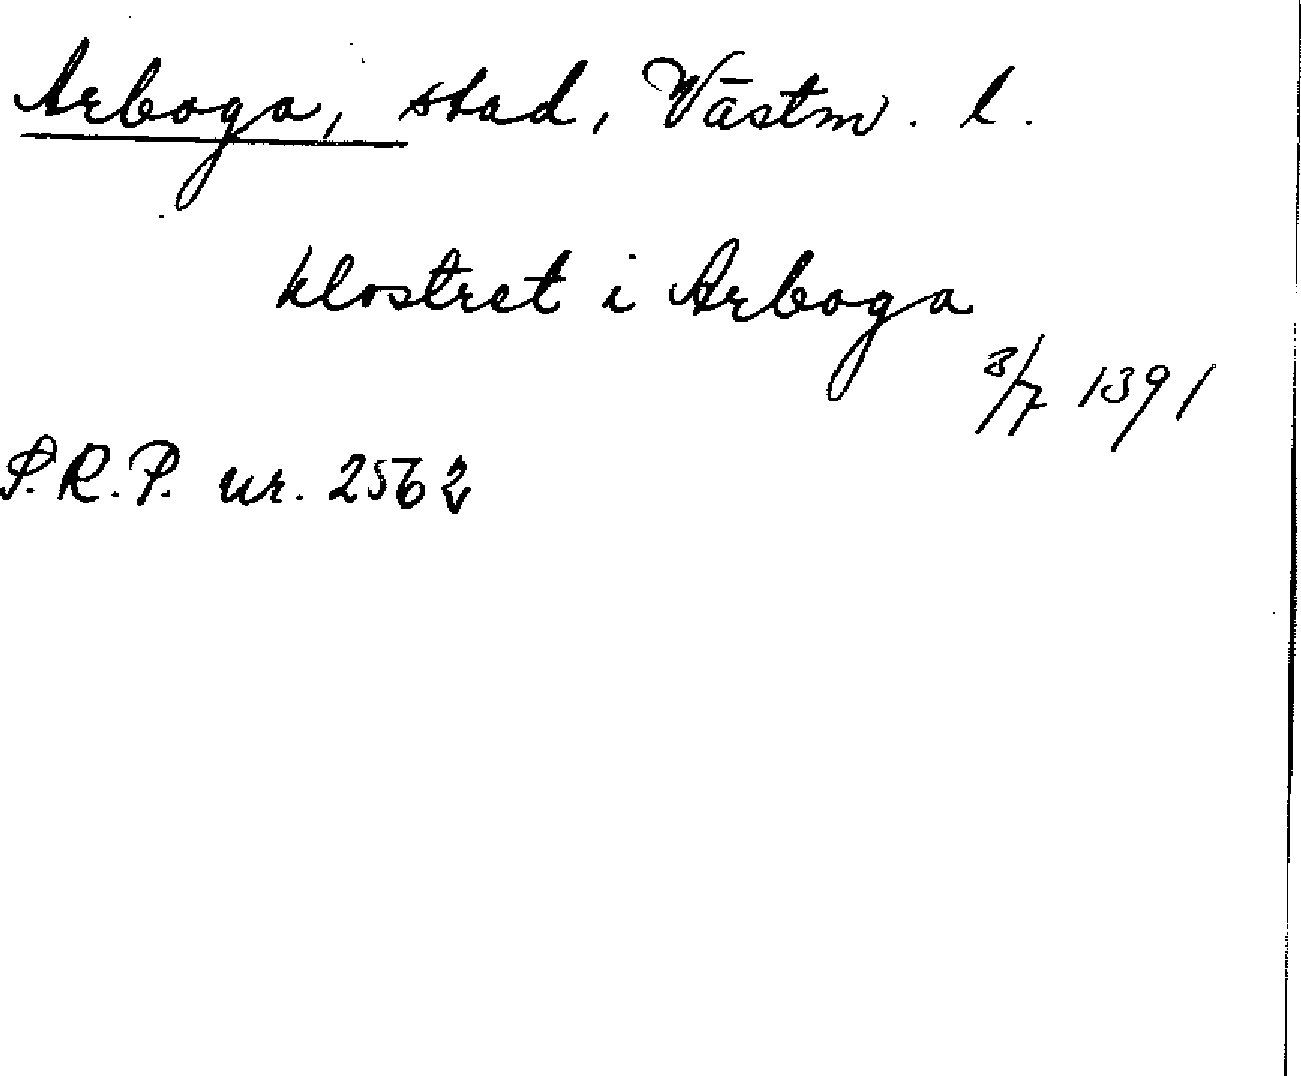 Arboga, stad, Västm. l.
klostret i Arboga
3/7 1391
S.R.P. nr. 2562